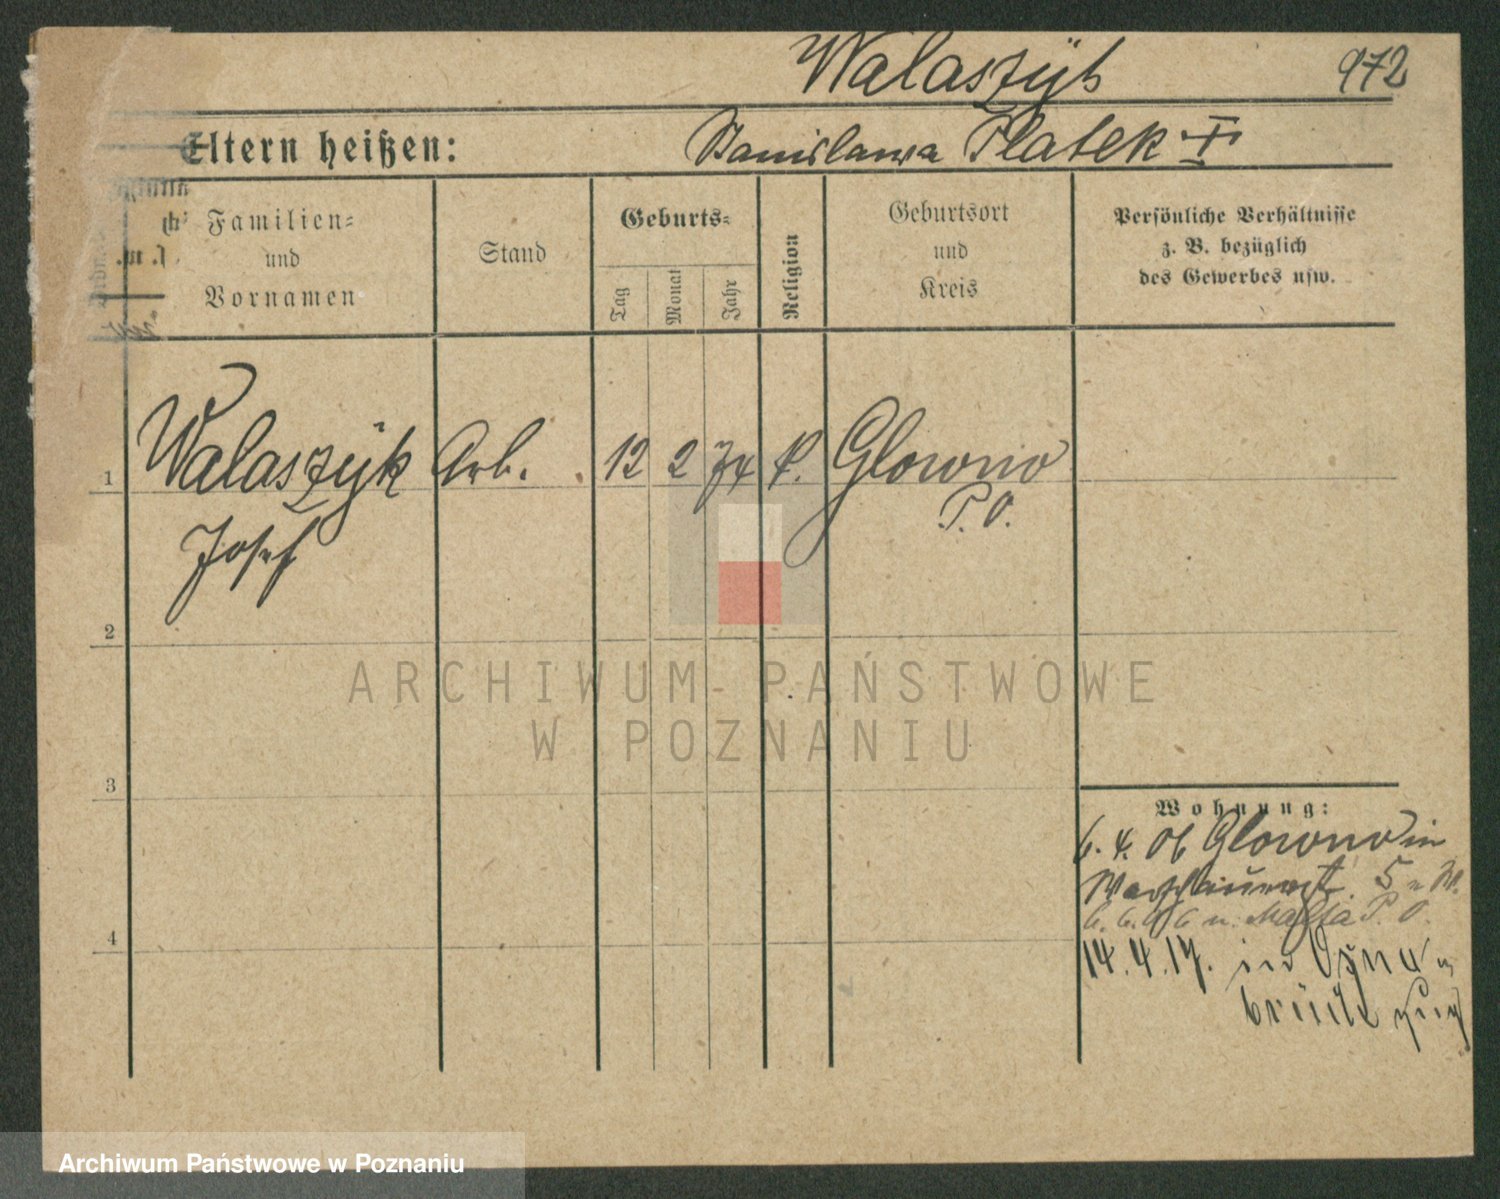 Walaszÿk
972
Eltern heißen:
Stanislawa Platek †
Familien- und Vornamen
Stand
Geburts-
Tag
Monat
Jahr
Religion
Geburtsort und Kreis
Persönliche Verhältnisse z. B. bezüglich des Gewerbes usw.
1
Walaszÿk Arb. 12 2 74 k. Glowno
Josef P. O.
2
ARCHIWUM PAŃSTWOWE
W POZNANIU
3
Wohnung:
6. 4. 06 Glowno in
Warschauerst. 5
6. 6. 06 n. Malta P. O.
4
14. 4. 17. in Osna-
brück
Archiwum Państwowe w Poznaniu